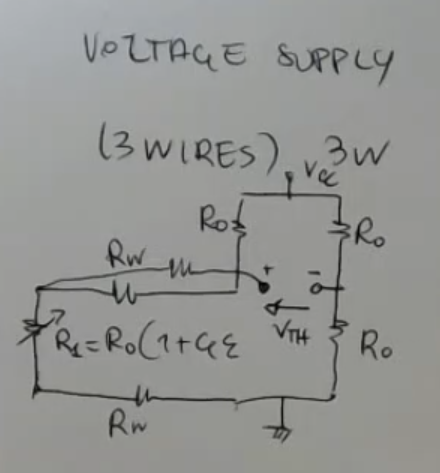 VOLTAGE SUPPLY
(3 WIRES) 3W
Vcc
Ro
Ro
Rw
+
-
VTH
R1=Ro(1+Gε
Ro
Rw